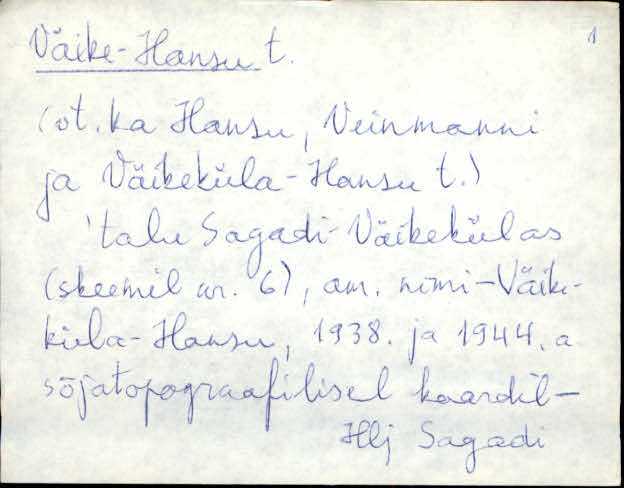 Väike-Hansu t.
1
(vt. ka Hansu, Veinmanni
ja Väikeküla-Hansu t.)
'talu Sagadi-Väikekülas
(skeemil nr. 6), am. nimi-Väike-
küla-Hansu, 1938. ja 1944. a
sõjatopograafilisel kaardil-
Hlj Sagadi